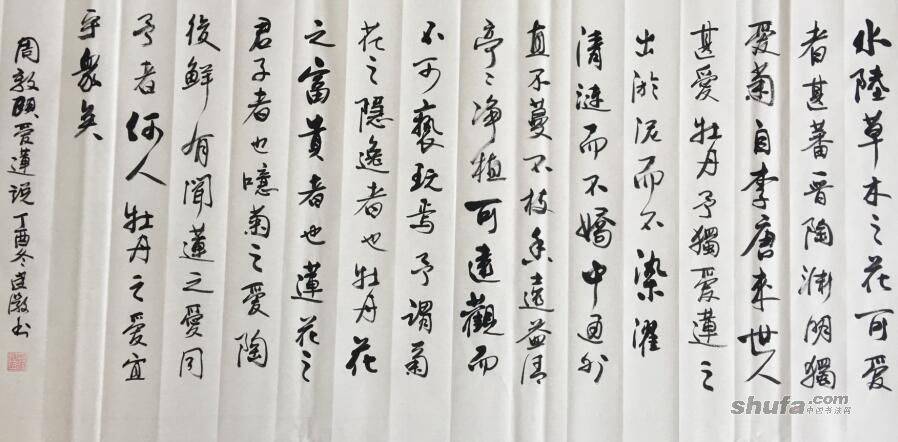 水陸草木之花可愛
者甚蕃晋陶渊明獨
愛菊自李唐来世人
甚愛牡丹予獨愛蓮之
出淤泥而不染濯
清漣而不嬌中通外
直不蔓不枝香遠益清
亭々净植可遠觀而
不可褻玩焉予謂菊
花之隱逸者也牡丹花
之富貴者也蓮花之
君子者也噫菊之愛陶
後鮮有聞蓮之愛同
予者何人牡丹之愛宜
乎衆矣
周敦頤愛蓮説丁酉冬
书
shufa.com
中国书法网